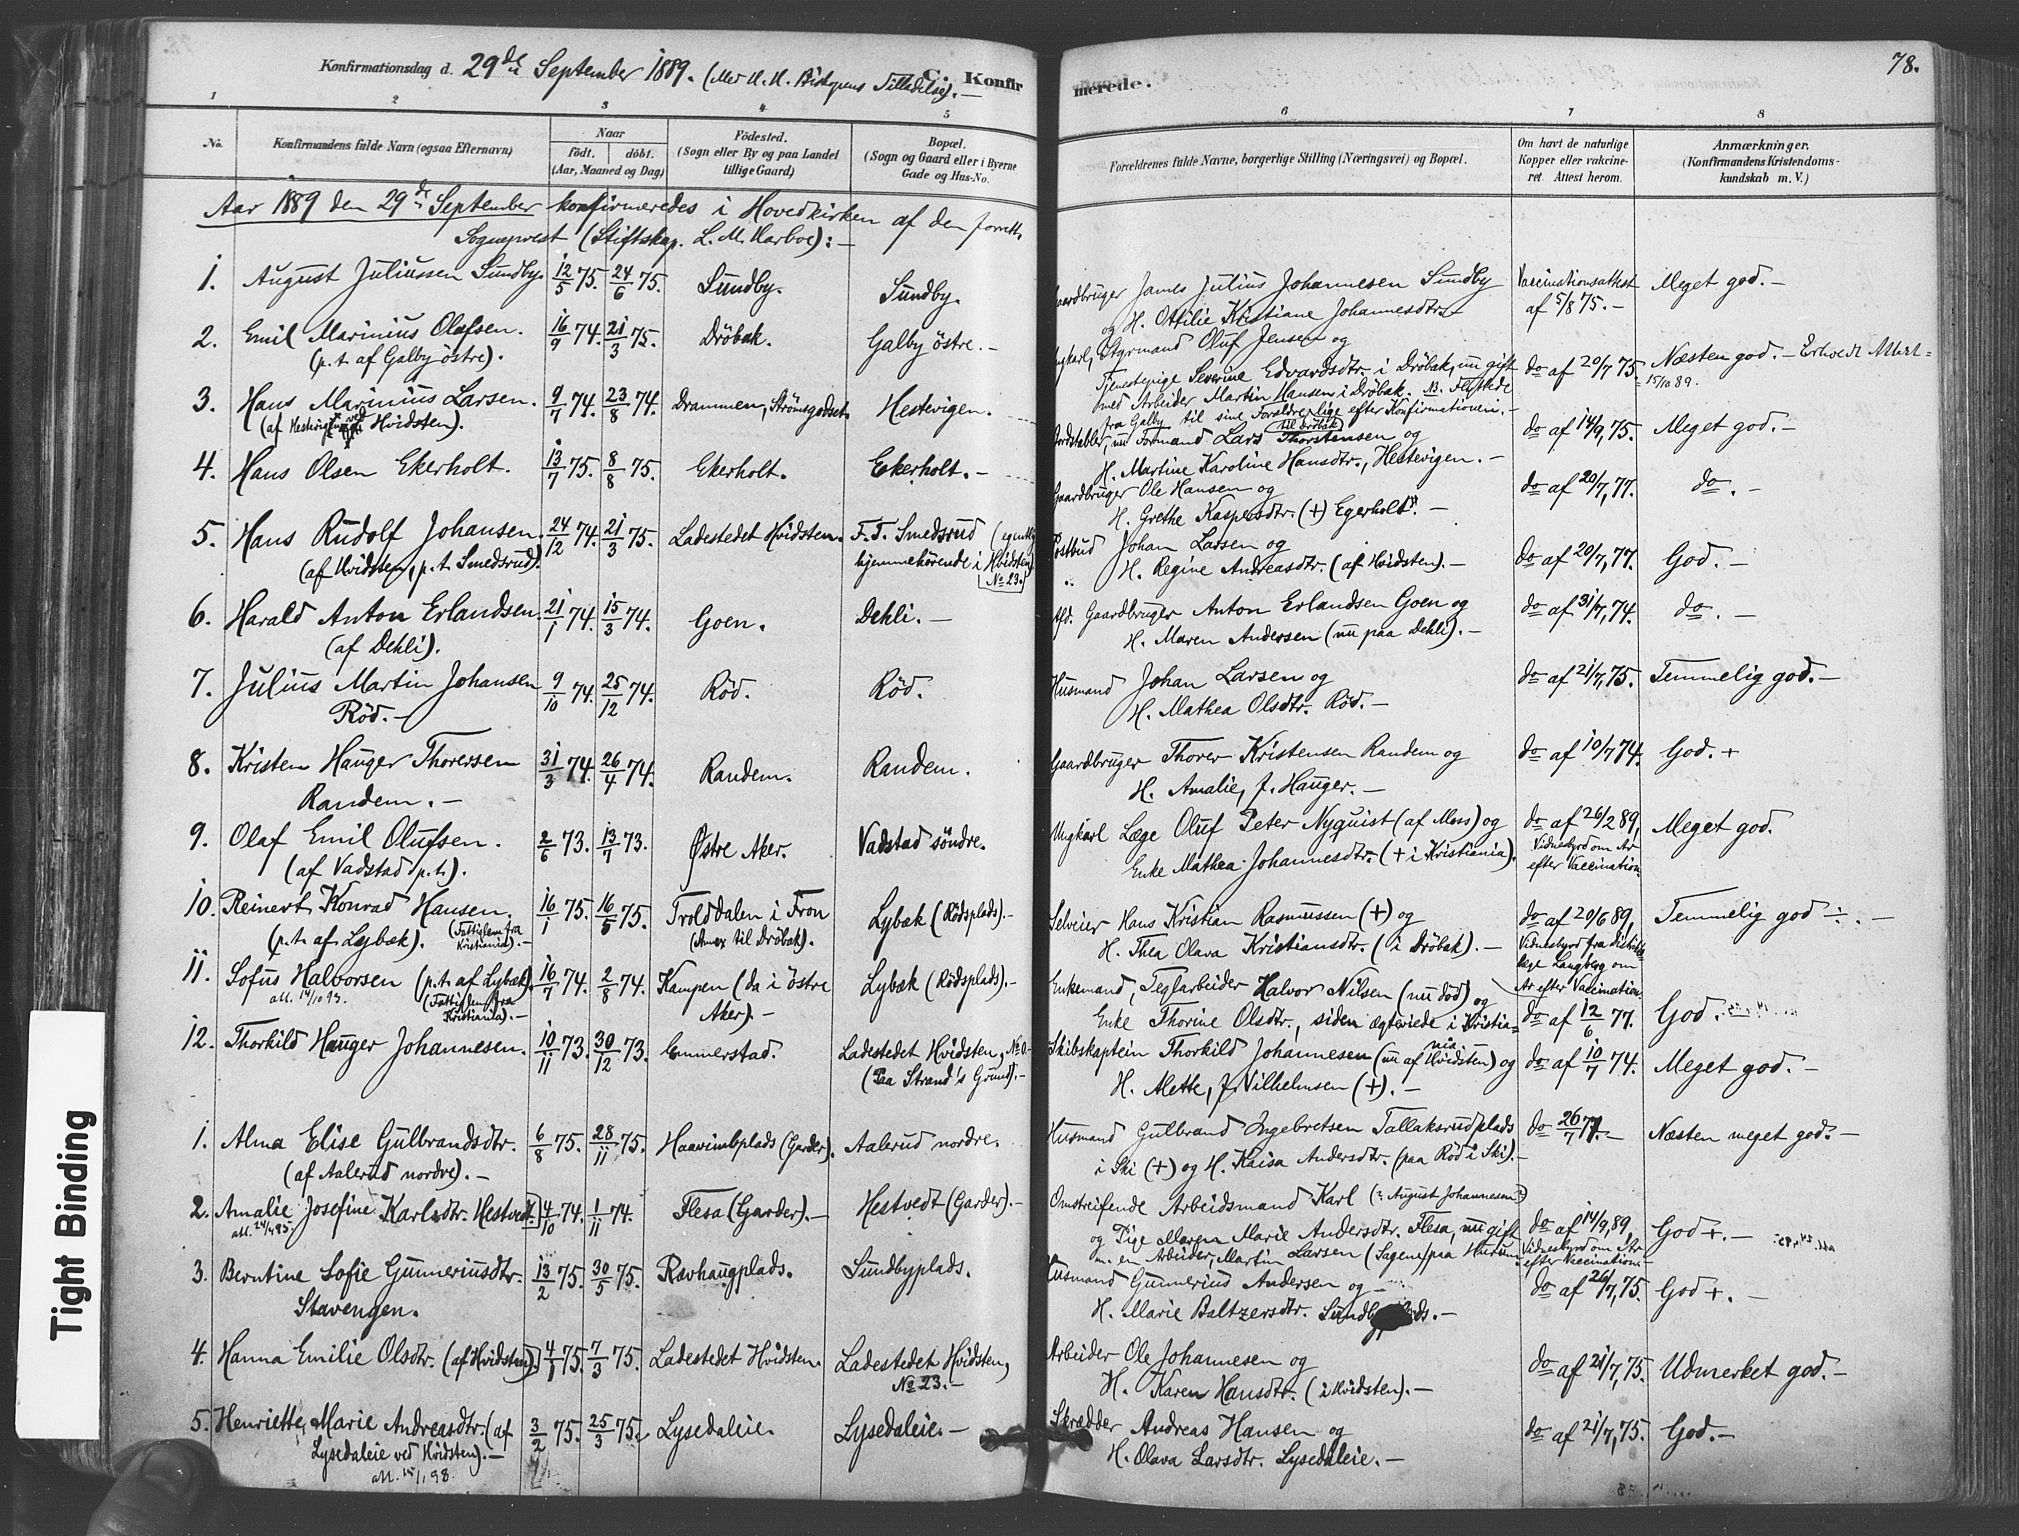 78.
Konfirmationsdag d. 29de September 1889. (Med H. H. Biskopens Tilladelse). —
C. Konfirmerede.
1 2 3 4 5 6 7 8
No.
Konfirmandens fulde Navn (ogsaa Efternavn)
Naar
födt. döbt.
(Aar, Maaned og Dag)
Födested.
(Sogn eller By og paa Landet
tillige Gaard)
Bopæl.
(Sogn og Gaard eller i Byerne
Gade og Hus-No.
Forældrenes fulde Navne, borgerlige Stilling (Næringsvei) og Bopæl.
Om havt de naturlige
Kopper eller vakcine-
ret. Attest herom.
Anmærkninger.
(Konfirmandens Kristendoms-
kundskab m. V.)
Aar 1889 den 29de September konfirmeredes i Hovedkirken af den forrett.
Sogneprest (Stiftskap. L. M. Harboe): —
1. August Juliussen Sundby. 12/5 75. 24/6 75. Sundby. Sundby. Gaardbruger James Julius Johannesen Sundby Vaccinationsattest Meget god. —
og H. Ottilie Kristiane Johannesdtr. — af 5/8 75. —
2. Emil Marinius Olafsen. 16/9 74. 21/3 75. Dröbak. Galby östre. — Ungkarl, Styrmand Oluf Jensen og
(p. t. af Galby östre).
Tjenestepige Severine Edvardsdtr. i Dröbak, nu gift do af 20/7 75 Næsten god. —
med Arbeider Martin Hansen i Dröbak. NB. Flyttede 15/10 89.
fra Galby til sine Forældre lige efter Konfirmationen. —
til Dröbak
3. Hans Marinius Larsen. 9/7 74. 23/8 74. Drammen, Strömsgodset. Hestevigen. Formand Lars Thorstensen og do af 14/9, 75. Meget god. —
ved Hvidsten).
H. Martine Karoline Hansdtr., Hestevigen. —
4. Hans Olsen Ekerholt. 13/7 75. 8/8 75. Ekerholt. Ekerholt. — Gaardbruger Ole Hansen og do af 20/7, 77. do. —
H. Grethe Kaspersdtr. (+) Egerholt. —
5. Hans Rudolf Johansen. 24/12 74. 21/3 75. Ladestedet Hvidsten. F. T. Smedsrud Postbud Johan Larsen og do af 20/7, 77. God. —
(af Hvidsten, p. t. Smedsrud). hjemmehörende i Hvidsten No 23. H. Regine Andreasdtr. (af Hvidsten). —
6. Harald Anton Erlandsen. 21/1 74. 15/3 74. Goen. Dehli. — Gaardbruger Anton Erlandsen Goen og do af 31/7, 74. do. —
(af Dehli). H. Maren Andersen (nu paa Dehli). —
7. Julius Martin Johansen 9/10 74. 25/12 74. Röd. Röd. Husmand Johan Larsen og do af 21/7, 75. Temmelig god. —
Röd. — H. Mathea Olsdtr. Röd. —
8. Kristen Hauger Thorersen 31/3 74. 26/4 74. Randem. Randem. Gaardbruger Thorer Kristensen Randem og do af 10/7 74. God. +
Randem. — H. Amalie, f. Hauger. —
9. Olaf Emil Olufsen. 2/6 73. 13/7 73. Østre Aker. Vadstad söndre. Ungkarl Læge Oluf Peter Nyquist (af Moss) og do af 26/2 89, Meget god.
(af Vadstad p. t.). Enke Mathea Johannesdtr. (+ i Kristiania). Vidnesbyrd om Ar
efter Vaccination
10. Reinert Konrad Hansen. 16/1 75. 16/5 75. Trolddalen i Fron Lybæk (Rödsplads). — Selveier Hans Kristian Rasmussen (+) og do af 20/6 89, Temmelig god ÷. —
(p. t. af Lybæk). (Fattiglem fra Kristiania). — (Anex til Dröbak). H. Thea Olava Kristiansdtr. (i Dröbak). — Vidnesbyrd fra Distrikts-
læge Langberg om
Ar efter Vaccination.
11. Sofus Halvorsen (p. t. af Lybæk). 16/7 74. 2/8 74. Kampen (da i östre Lybæk (Rödsplads). — Enkemand, Halvor Nilsen (nu död) og
att. 14/10 95. (Fattiglem fra Kristiania). — Aker). — Enke Thorine Olsdtr., siden ægteviede i Kristiania do af 12/6 77. God. —
12. Thorkild Hauger Johannesen. 10/11 73. 30/12 73. Emmerstad. Ladestedet Hvidsten, Skibskaptein Thorkild Johannesen (nu af Hvidsten) og do af 10/7 74. Meget god. —
(Paa Strand's Grund). — H. Alette, f. Vilhelmsen (+). —
1. Alma Elise Gulbrandsdtr. 6/8 75. 28/11 75. Haavimbplads (Garder). Aalerud nordre. Husmand Gulbrand Ingebretsen Tallaksrudplads do 26/7 77. — Næsten meget god. —
(af Aalerud nordre). — i Ski (+) og H. Kaisa Andersdtr. (paa Röd i Ski). —
2. Amalie Josefine Karlsdtr. Hestvedt. 4/10 74. 1/11 74. Flesa (Garder). — Hestvedt (Garder). — Omstreifende Arbeidsmand Karl (August Johannesen?)
att. 24/4 95. og Pige Maren Marie Andersdtr. Flesa, nu gift do af 14/9, 89, God +. —
m. en Arbeider, Martin Larsen (Sagen) paa Hurum Vidnesbyrd om Ar
efter Vaccination —
3. Berntine Sofie Gunneriusdtr. 13/2 75. 30/5 75. Rævhaugplads. Sundbyplads. Husmand Gunnerius Andersen og — do af 26/7, 75. God +. —
Stavengen. H. Marie Baltzersdtr. —
4. Hanna Emilie Olsdtr. (af Hvidsten). 4/1 75. 7/3 75. Ladestedet Hvidsten. Ladestedet Hvidsten, Arbeider Ole Johannesen og do af 21/7, 75. Udmerket god. —
No 23. — H. Karen Hansdtr. (i Hvidsten). —
5. Henriette Marie Andreasdtr. (af 3/2 75. 25/3 75. Lysedaleie. Lysedaleie. — Skrædder Andreas Hansen og do af 21/7, 75. God. —
Lysedaleie ved Hvidsten). — H. Olava Larsdtr. Lysedaleie. —
Tight Binding